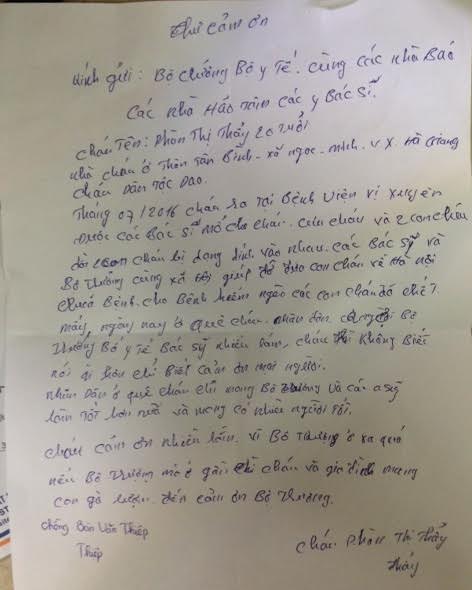 Thư cảm ơn
Kính gửi: Bộ trưởng Bộ y tế. cùng các nhà Báo
Các nhà Hảo tâm các y Bác sĩ.
cháu Tên: Phàn Thị Thẩy 20 Tuổi
nhà cháu ở Thôn Tân Bình - xã ngọc - minh. V X. Hà Giang
cháu Dân Tộc Dao.
Tháng 07/2016 cháu ra tại Bệnh viện vị xuyên
được các Bác sĩ mổ cho cháu. cứu cháu và 2 con cháu
đời con cháu bị dạng dính vào nhau. các Bác sỹ và
Bộ Trưởng cùng xã hội giúp đỡ đưa con cháu về Hà nội
chữa Bệnh. cho Bệnh hiểm ngèo các con cháu đã chết
mấy ngày nay ở quê cháu. nhân dân Bộ
Trưởng Bộ y Tế Bác sỹ nhiều lắm, cháu không Biết
nói gì hơn chỉ biết cảm ơn mọi người.
nhân Dân ở quê cháu chỉ mong Bộ Trưởng và các sỹ
làm tốt hơn nữa và mong có nhiều người tốt.
cháu cảm ơn nhiều lắm. vì Bộ Trưởng ở xa quá
nếu Bộ Trưởng mà ở gần thì cháu và gia đình mang
con gà rượu. đến cảm ơn Bộ Trưởng.
chồng Bàn Văn Thiệp
Thiệp
cháu Phàn Thị Thẩy
Thẩy